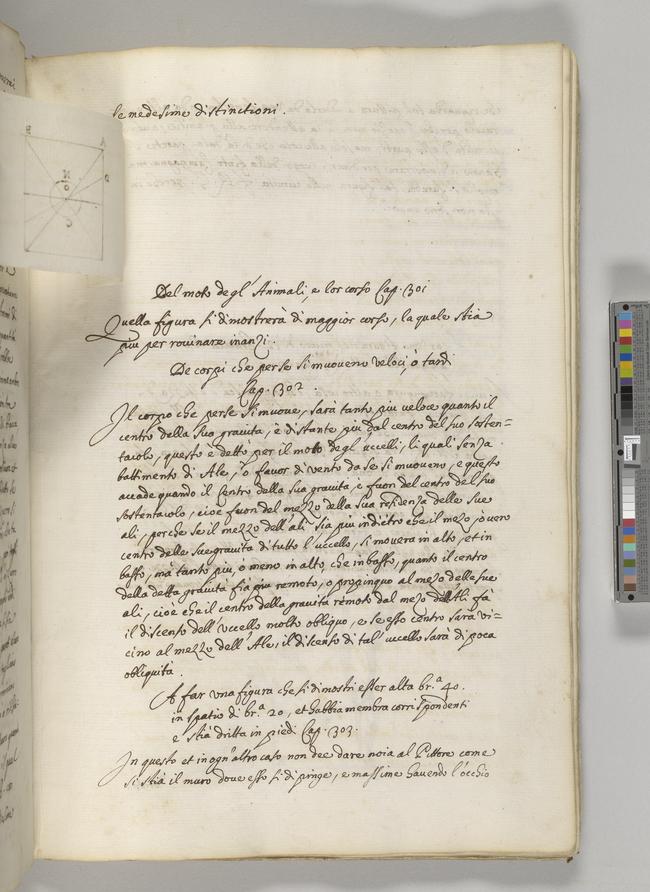 le medesime distinctioni.
Del moto degl'Animali, e lor corso Cap. 301
Quella figura si dimostrerà di maggior corso, la quale stia
piu per rouinare inanzi.
De corpi che per se si muoueno veloci, ò tardi
Cap. 302.
Il corpo che per se si muoue, sarà tanto piu veloce quanto il
centro della sua grauita, è distante piu dal centro del suo sosten=
tacolo, questo è detto per il moto degl'uccelli, li quali senza
battimento di Ale, ò fauor di vento da se si muoueno, e questo
accade quando il Centro della sua grauità, è fuori del centro del suo
sostentacolo, cioè fuori del mezzo della sua residenza delle sue
ali, perche se il mezzo dell'ali sia piu indietro che il mezo, ò vero
centro della sue grauita di tutto l'uccello, si mouera in alto, et in
basso, mà tanto piu, o meno in alto, che in basso, quanto il centro
della detta grauità fia piu remoto, o propinquo al mezo delle sue
ali, cioè che il centro della grauità remoto dal mezo dell'Ali fà
il discenso dell'uccello molto obliquo, e se esso centro sarà vi=
cino al mezzo dell'Ale, il discenso di tal'uccello sarà di poca
obliquità.
A far vna figura che si dimostri esser alta br.ª 40.
in spatio di br.ª 20, et habbia membra corrispondenti
e stia dritta in piedi Cap. 303.
In questo et in ogn'altro caso non dee dare noia al Pittore come
si stia il muro doue esso si dipinge, e massime hauendo l'occhio
B
A
N
O
C